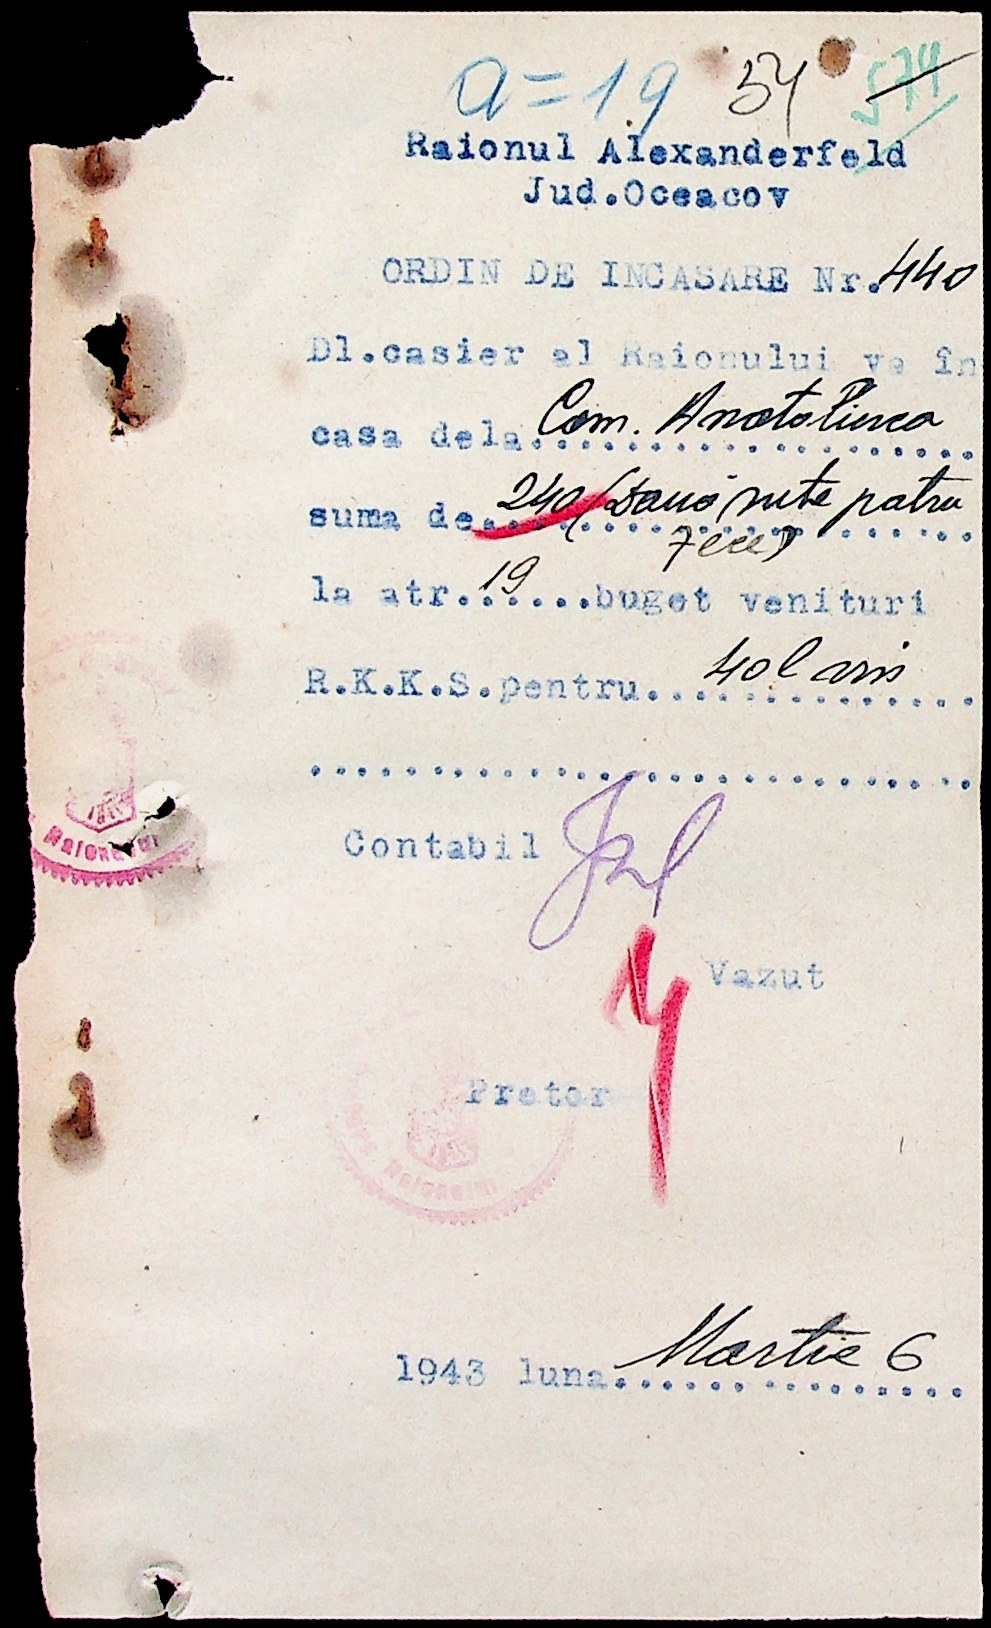 a=19 54 574
Raionul Alexanderfeld
Jud.Oceacov
ORDIN DE INCASARE Nr.440
Dl.casier al Raionului va în
casa dela. Com. Anatolievca
suma de. 240 (Două sute patru
zeci)
la atr. 19 ...buget venituri
R.K.K.S.pentru. 40 l
Contabil
Vazut
Pretor
Raionului
Raionului
1943 luna. Martie 6